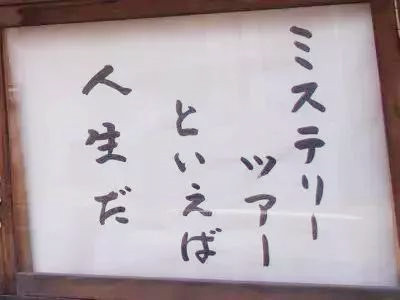 ミステリー
ツアー
といえば
人生だ